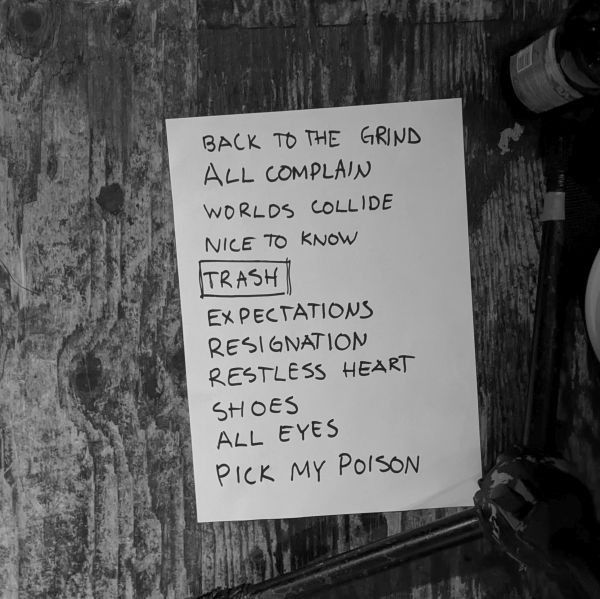 BACK TO THE GRIND
ALL COMPLAIN
WORLDS COLLIDE
NICE TO KNOW
TRASH
EXPECTATIONS
RESIGNATION
RESTLESS HEART
SHOES
ALL EYES
PICK MY POISON